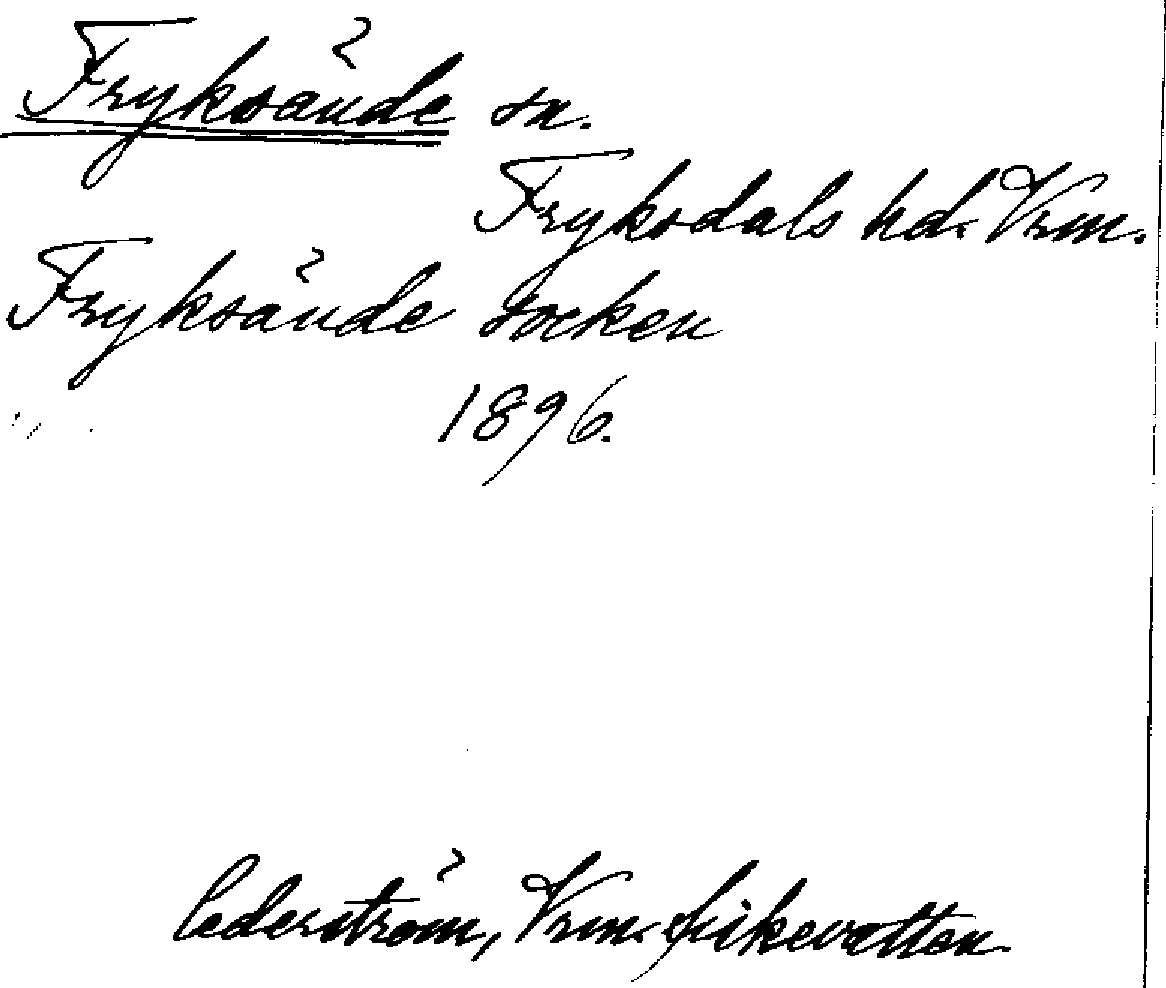 Fryksände sn.
Fryksdals hd. Vrm.
Fryksände socken
1896.
Cederström, Vrm. fiskevatten.